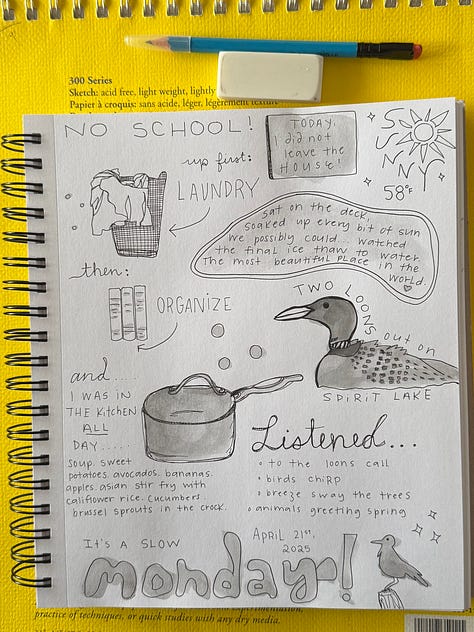 300 Series
Sketch: acid free, light weight, lightly
Papier à croquis: sans acide, léger, légèrement texturé
NO SCHOOL!
TODAY,
I did not
leave the
HOUSE!
SUNNY
58°F
up first:
LAUNDRY
sat on the deck,
soaked up every bit of sun
we possibly could... watched
the final ice thaw to water.
The most beautiful place in the
world.
then:
ORGANIZE
TWO LOONS
out on
SPIRIT LAKE
and...
I WAS IN
THE KITCHEN
ALL
DAY......
Soup. sweet
potatoes. avocados. bananas.
apples. asian stir fry with
califlower rice. cucumbers.
brussel sprouts in the crock.
Listened...
• to the loons call
• birds chirp
• breeze sway the trees
• animals greeting spring
IT'S A SLOW
APRIL 21st,
2025
monday!
practice of techniques, or quick studies with any dry media.